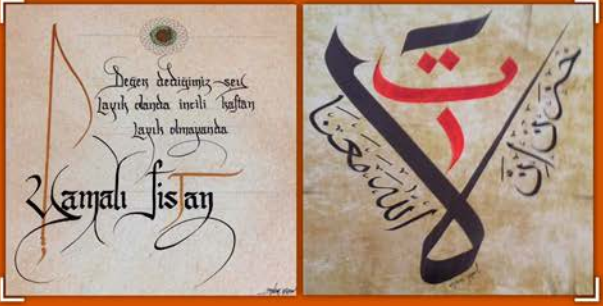 Değer dediğimiz şey
Layık olanda incili kaftan
Layık olmayanda
Yamalı fistan
لا ت
حزن إن
الله معنا